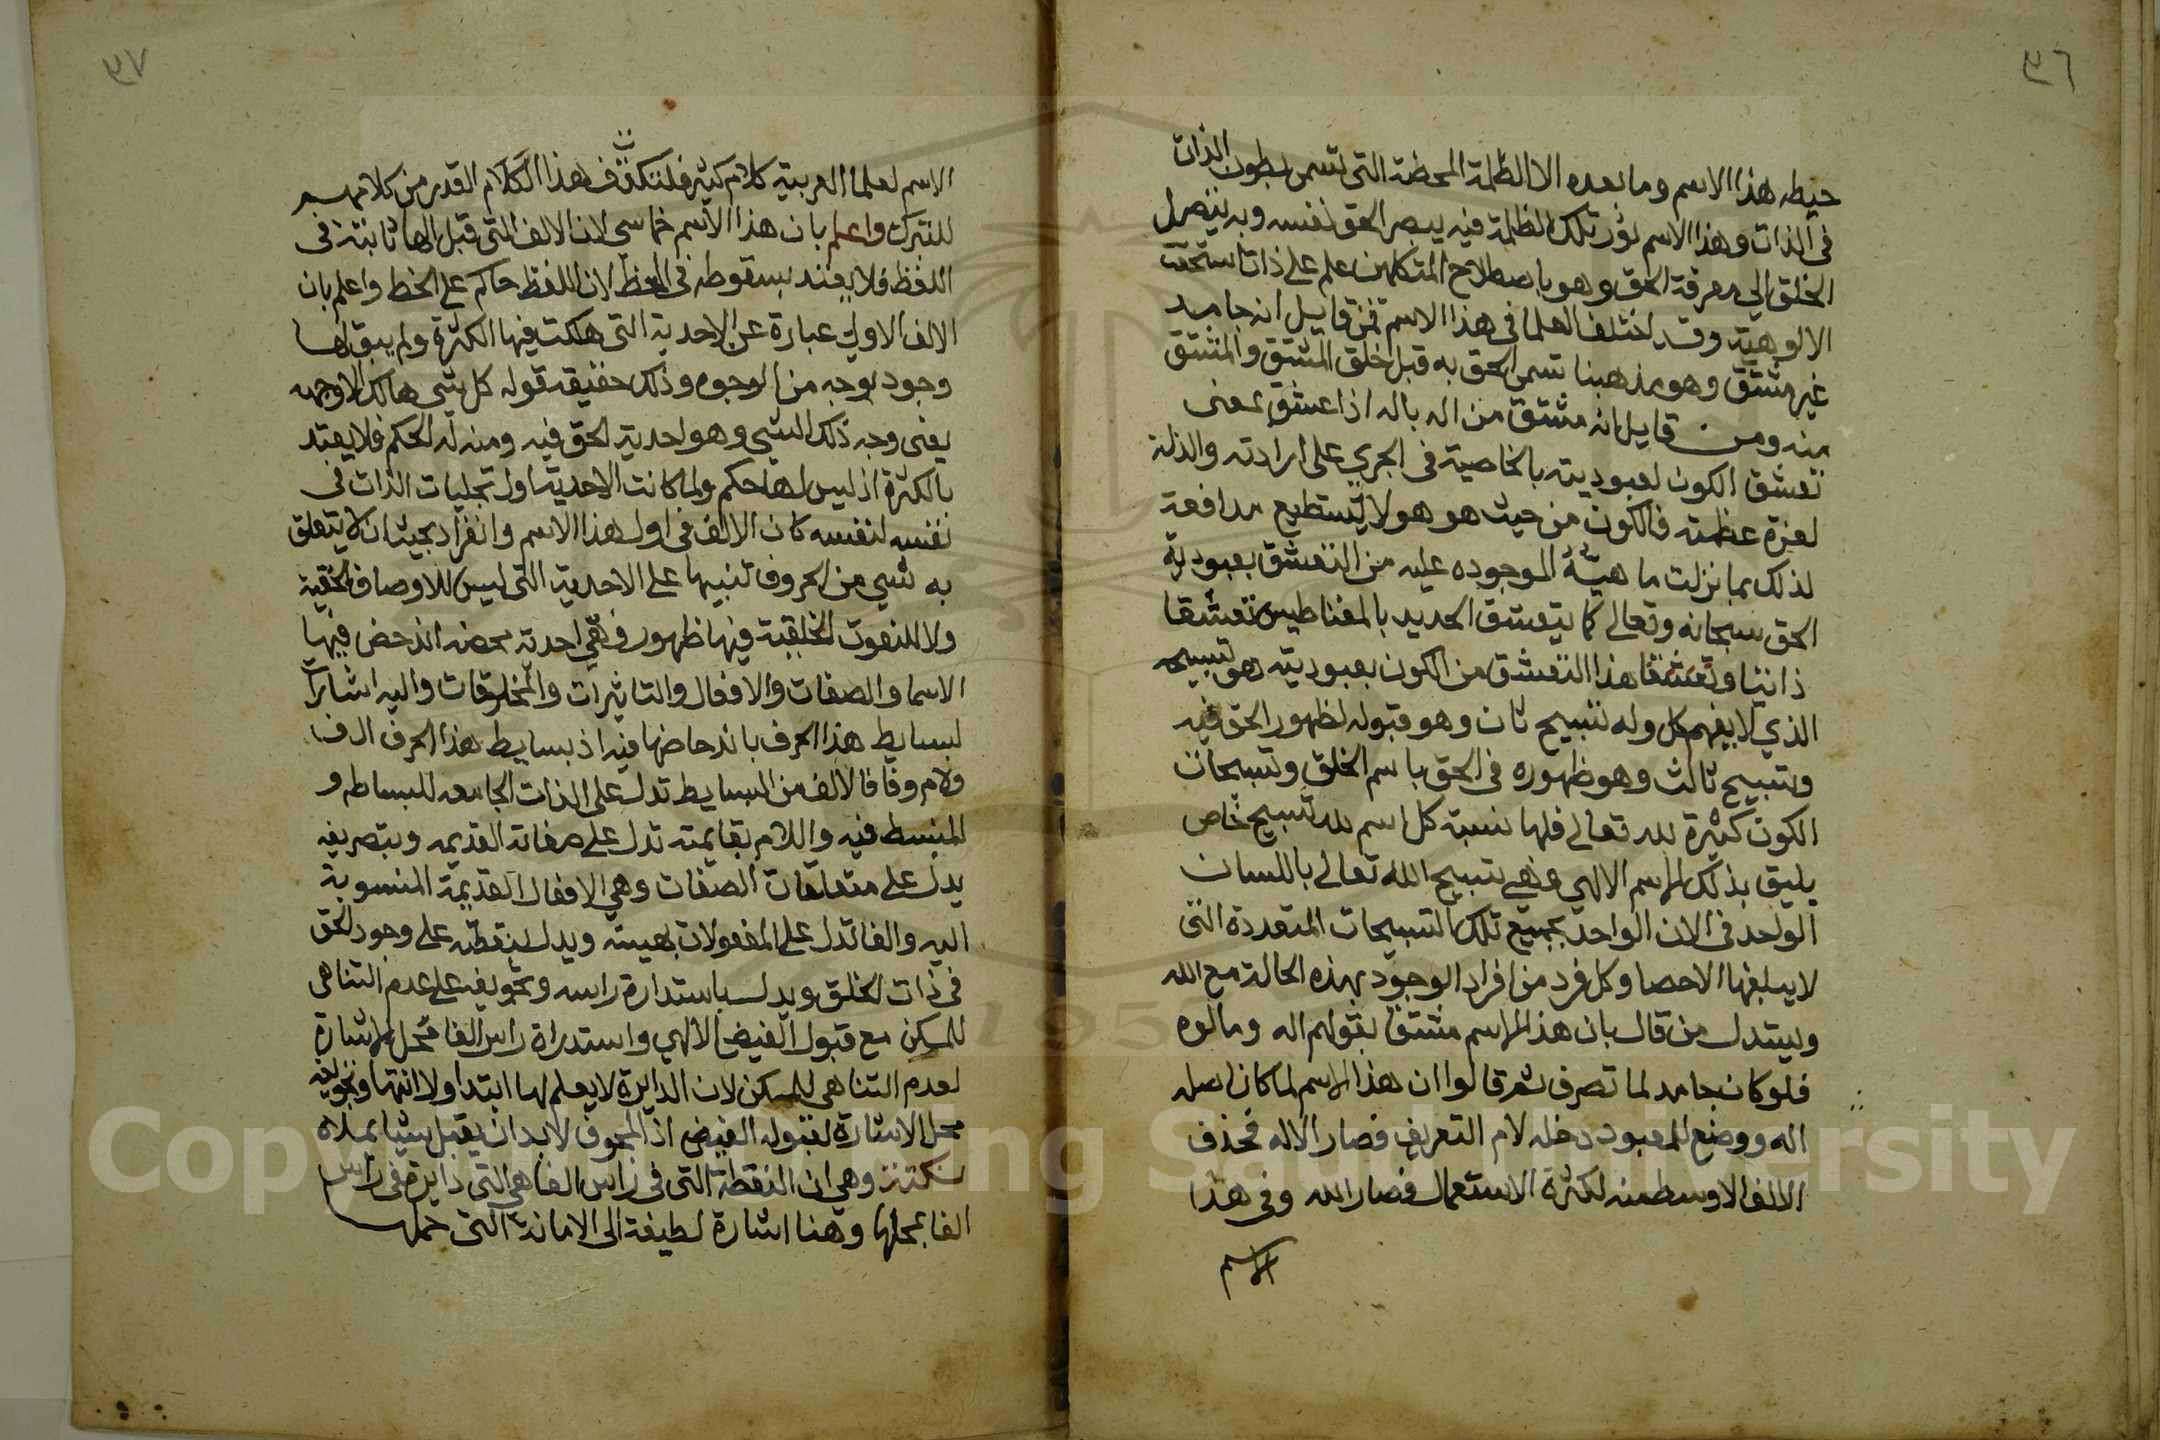 ٣٦
حيطه هذا الاسم وما بعده الا الظلمة المحضة التي تسمى بطون الذات
في الذات وهذا الاسم نور تلك الظلمة فيه يبصر الحق نفسه وبه يتصل
الخلق الي معرفة الحق وهو باصطلاح المتكلمين علم على ذات استحقت
الالوهية وقد اختلف العلما في هذا الاسم فمن قايل انه جامد
غير مشتق وهو مذهبنا تسمى الحق به قبل خلق المشتق والمشتق
منه ومن قايل انه مشتق من اله ياله اذا عشق بمعنى
تعشق الكون لعبوديته بالخاصية في الجري على ارادته والذلة
لعزة عظمته فالكون من حيث هو هو لا يستطيع مدافعة
لذلك بما نزلت ماهية الموجوده عليه من التعشق بعبودية
الحق سبحانه وتعالى كما يتعشق الحديد بالمغناطيس تعشقا
ذاتيا وتعشقا هذا التعشق من الكون بعبوديته هو تسبيحه
الذي لا يفهم كل وله تسبيح ثان وهو قبوله لظهور الحق فيه
وتسبيح ثالث وهو ظهوره في الحق باسم الخلق وتسبيحات
الكون كثيرة لله تعالى فلها نسبة كل اسم لله تسبيح خاص
يليق بذلك الاسم الالهي فهي تسبح الله تعالى باللسان
الواحد في الان الواحد بجميع تلك التسبيحات المتعددة التي
لا يبلغها الاحصا وكل فرد من افراد الوجود بهذه الحالة مع الله
ويستدل من قال بان هذا الاسم مشتق بقولهم اله ومالوه
فلو كان جامد لما تصرف ثم قالوا ان هذا الاسم لما كان اصله
اله ووضع للمعبود دخله لام التعريف فصار الاله فحذف
الالف الاوسط منه لكثرة الاستعمال فصار الله وفي هذا
الاسم
٣٧
الاسم لعلما العربية كلام كثير فلنكتف في هذا الكلام القدر من كلامهم
للتبرك واعلم بان هذا الاسم خماسي لان الالف التي قبل الها ثابتة في
اللفظ فلا يعتد بسقوطه في الخط لان اللفظ حاكم على الخط واعلم بان
الالف الاولي عبارة عن الاحدية التي هلكت فيها الكثرة ولم يبق لها
وجود بوجه من الوجوه وذلك حقيقه قوله كل شي هالك الا وجهه
يعني وجه ذلك الشي وهو احدية الحق فيه ومنه له الحكم فلا يعتد
بالكثرة اذ ليس لها حكم ولما كانت الاحدية اول تجليات الذات في
نفسه لنفسه كان الالف في اول هذا الاسم وانفراد بحيث ان لا يتعلق
به شي من الحروف تنبيها على الاحدية التي ليس للاوصاف الحقية
ولا للنعوت الخلقية فيها ظهور فهي احدية محضه اندحض فيها
الاسما والصفات والافعال والتاثيرات والمخلوقات واليه اشارات
بسايط هذا الحرف باندحاضها فيه اذ بسايط هذا الحرف الف
ولام وفا فالالف من البسايط تدل على الذات الجامعه للبساطه و
المنبسط فيه واللام بقايمته تدل على صفاته القديمه وبتصريفه
يدل على متعلقات الصفات وهي الافعال القديمة المنسوبة
اليه والفا تدل على المفعولات بهيئته ويدل بنقطته على وجود الحق
في ذات الخلق ويدل باستدارة راسه وتجويفه على عدم التناهي
للممكن مع قبول الفيض الالهي واستدراة راس الفا محل الاشارة
لعدم التناهي للممكن لان الدايرة لا يعلم لها ابتدا ولا انتها وتجويفه
محل الاشارة لقبوله الفيض اذ المجوف لابد ان يقبل شيئا يملاه
نكتة وهي ان النقطة التي في راس الفا هي التي دايرة في راس
الفا محلها وهنا اشارة لطيفة الى الامانة التي حملها